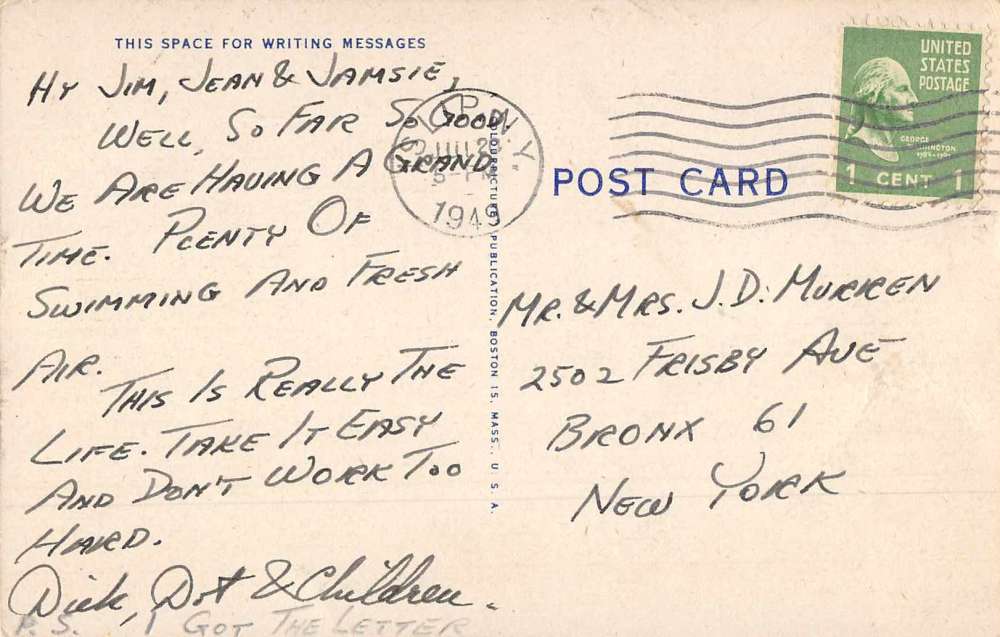 THIS SPACE FOR WRITING MESSAGES
HY JIM, JEAN & JAMSIE,
WELL, SO FAR SO GOOD.
WE ARE HAVING A GRAND
TIME. PLENTY OF
SWIMMING AND FRESH
AIR.
THIS IS REALLY THE
LIFE. TAKE IT EASY
AND DON'T WORK TOO
HARD.
Dick, Dot & Children.
P.S. I GOT THE LETTER
N.Y.
1949
COLOURPICTURE PUBLICATION, BOSTON 15, MASS., U. S. A.
POST CARD
UNITED
STATES
POSTAGE
GEORGE
WASHINGTON
1 CENT 1
MR. & MRS. J. D. MURREN
2502 FRISBY AVE
BRONX 61
NEW YORK